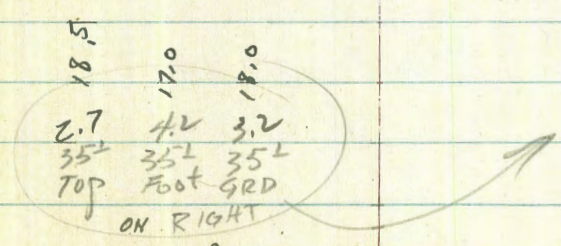 18.5 17.0 18.0
2.7 4.2 3.2
35± 35± 35±
TOP Foot GRD
ON RIGHT